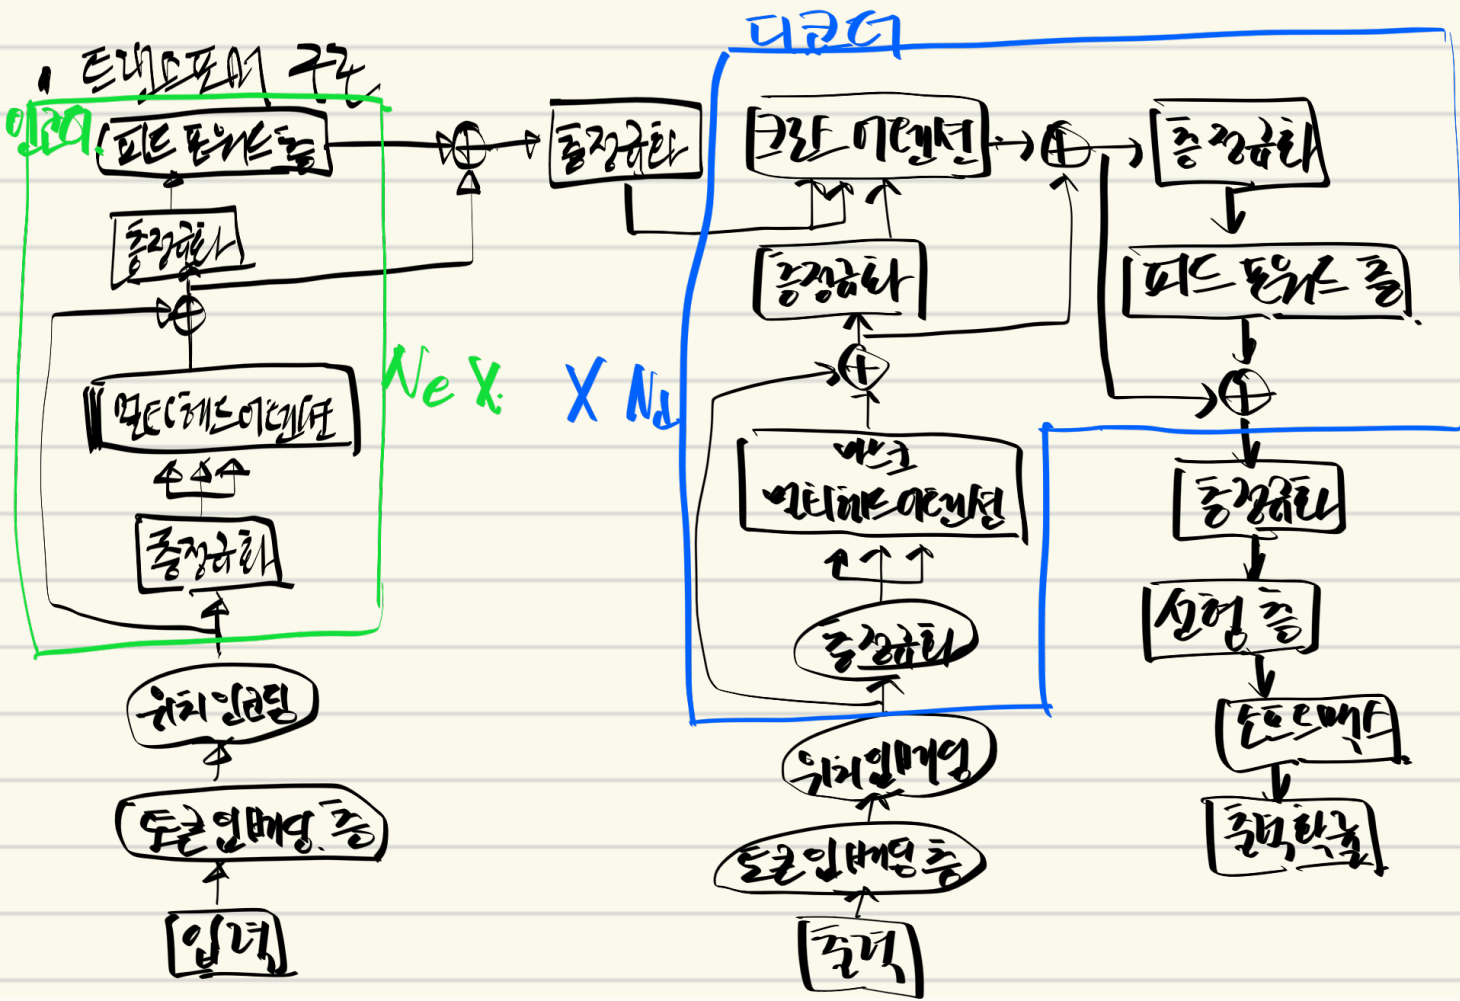 트랜스포머 구조
인코더
피드 포워드 층
층정규화
멀티헤드어텐션
층정규화
Ne X.
위치 인코딩
토큰 임베딩 층
입력
층정규화
디코더
크로스 어텐션
층정규화
X Nd
마스크
멀티헤드 어텐션
층정규화
위치 임베딩
토큰 임베딩 층
출력
층정규화
피드 포워드 층
층정규화
선형 층
소프트맥스
출력 확률